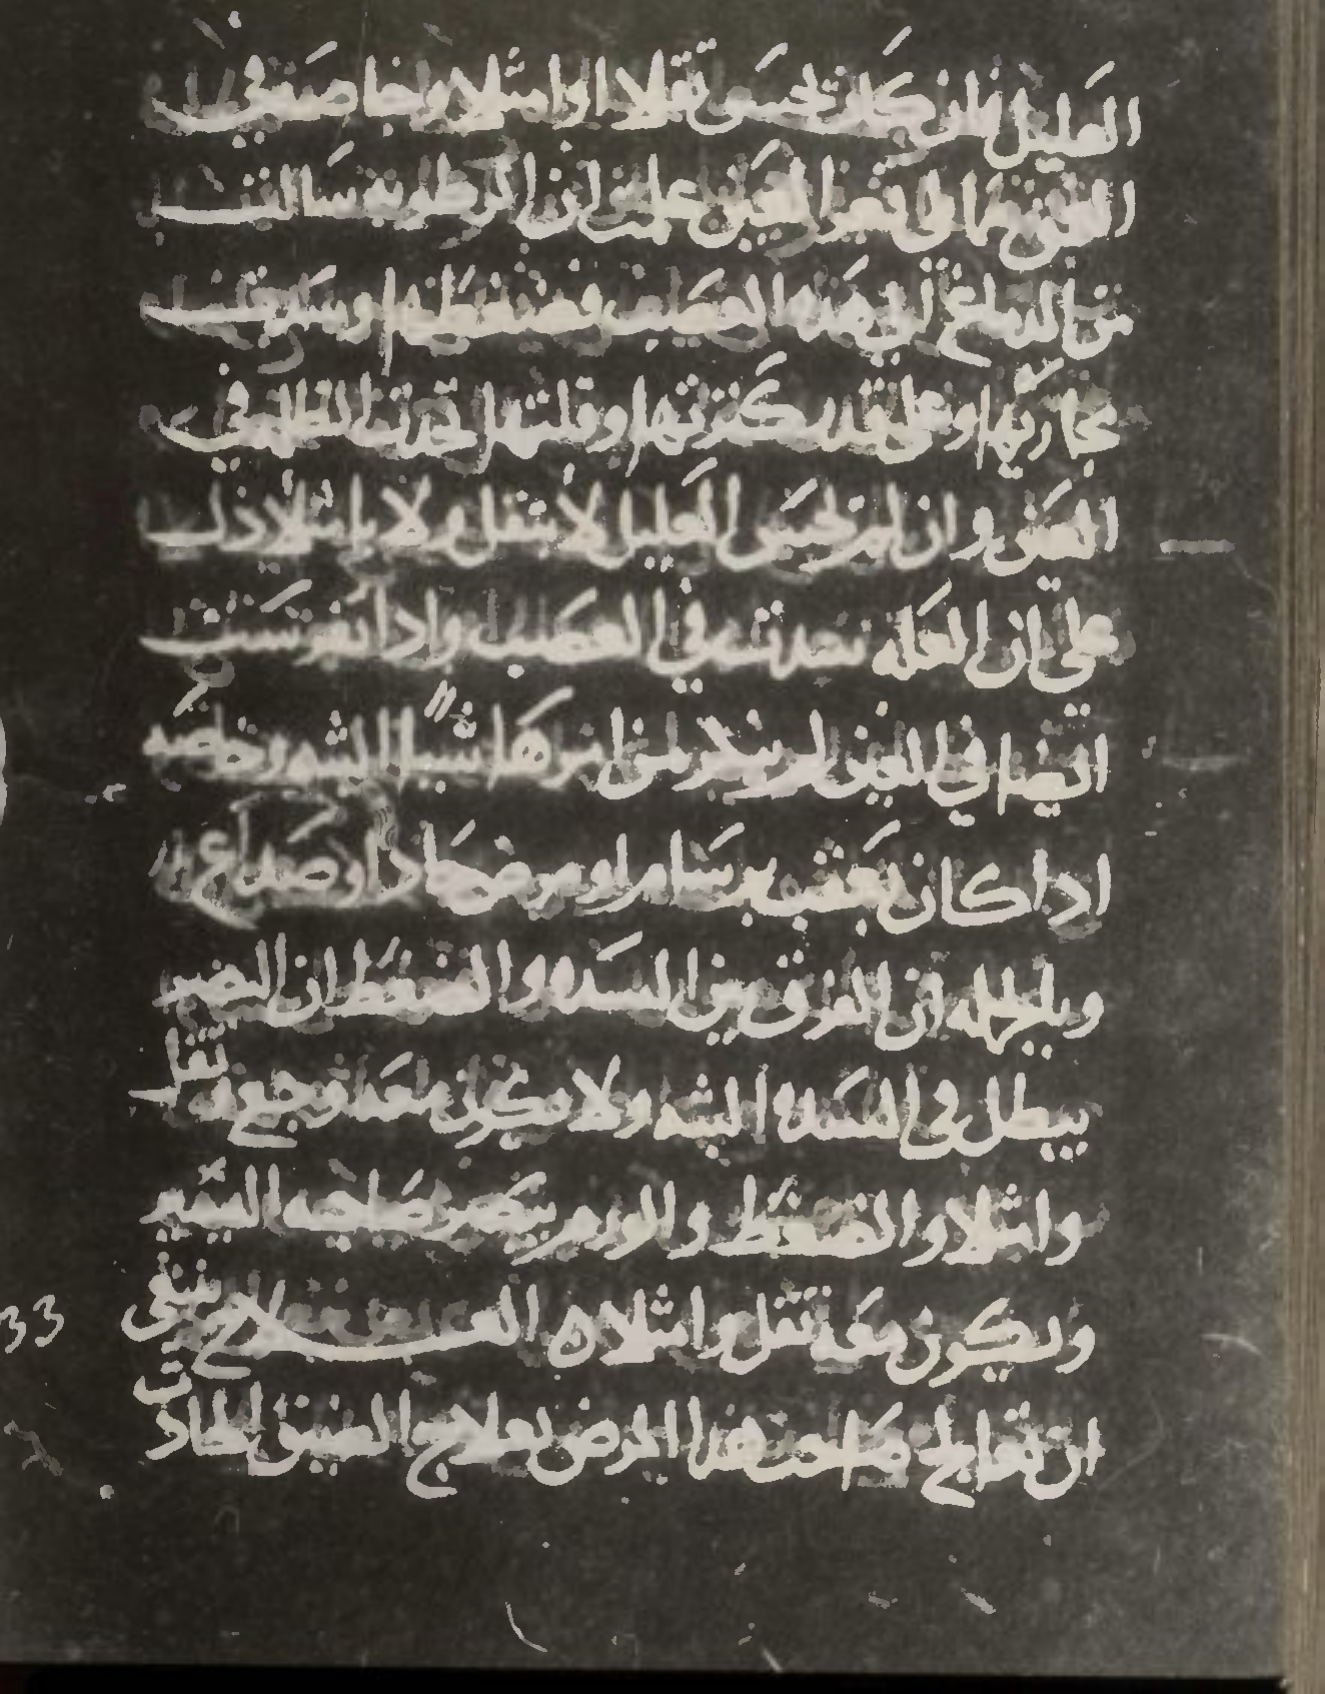 العليل فان كان يحس ثقلا او امتلا وخاصة في
العين مما يلي قعر العين علمت ان الرطوبة سالت
من الدماغ الى هذه العصب فضغطتها وسدت
مجاريها وعلى قدر كثرتها وقلتها تحدث الظلمه في
العين وان لم يحس العليل لا بثقل ولا بامتلا دل
على ان العله حدثت في العصب واذا تفرست
ايضا في العين لم ينكر من امرها شيا البته وخاصه
اذا كان بعقب برسام او مرض حاد او صداع
وبالجمله ان الفرق بين السده والضغط ان البصر
يبطل في السده البته ولا يكون معه وجع ثقل
وامتلا والضغط والورم يبصر صاحبه اليسير
ويكون معه ثقل وامتلاه العلاج ينبغي
ان تعالج صاحب هذا المرض بعلاج الضيق الحادث
33